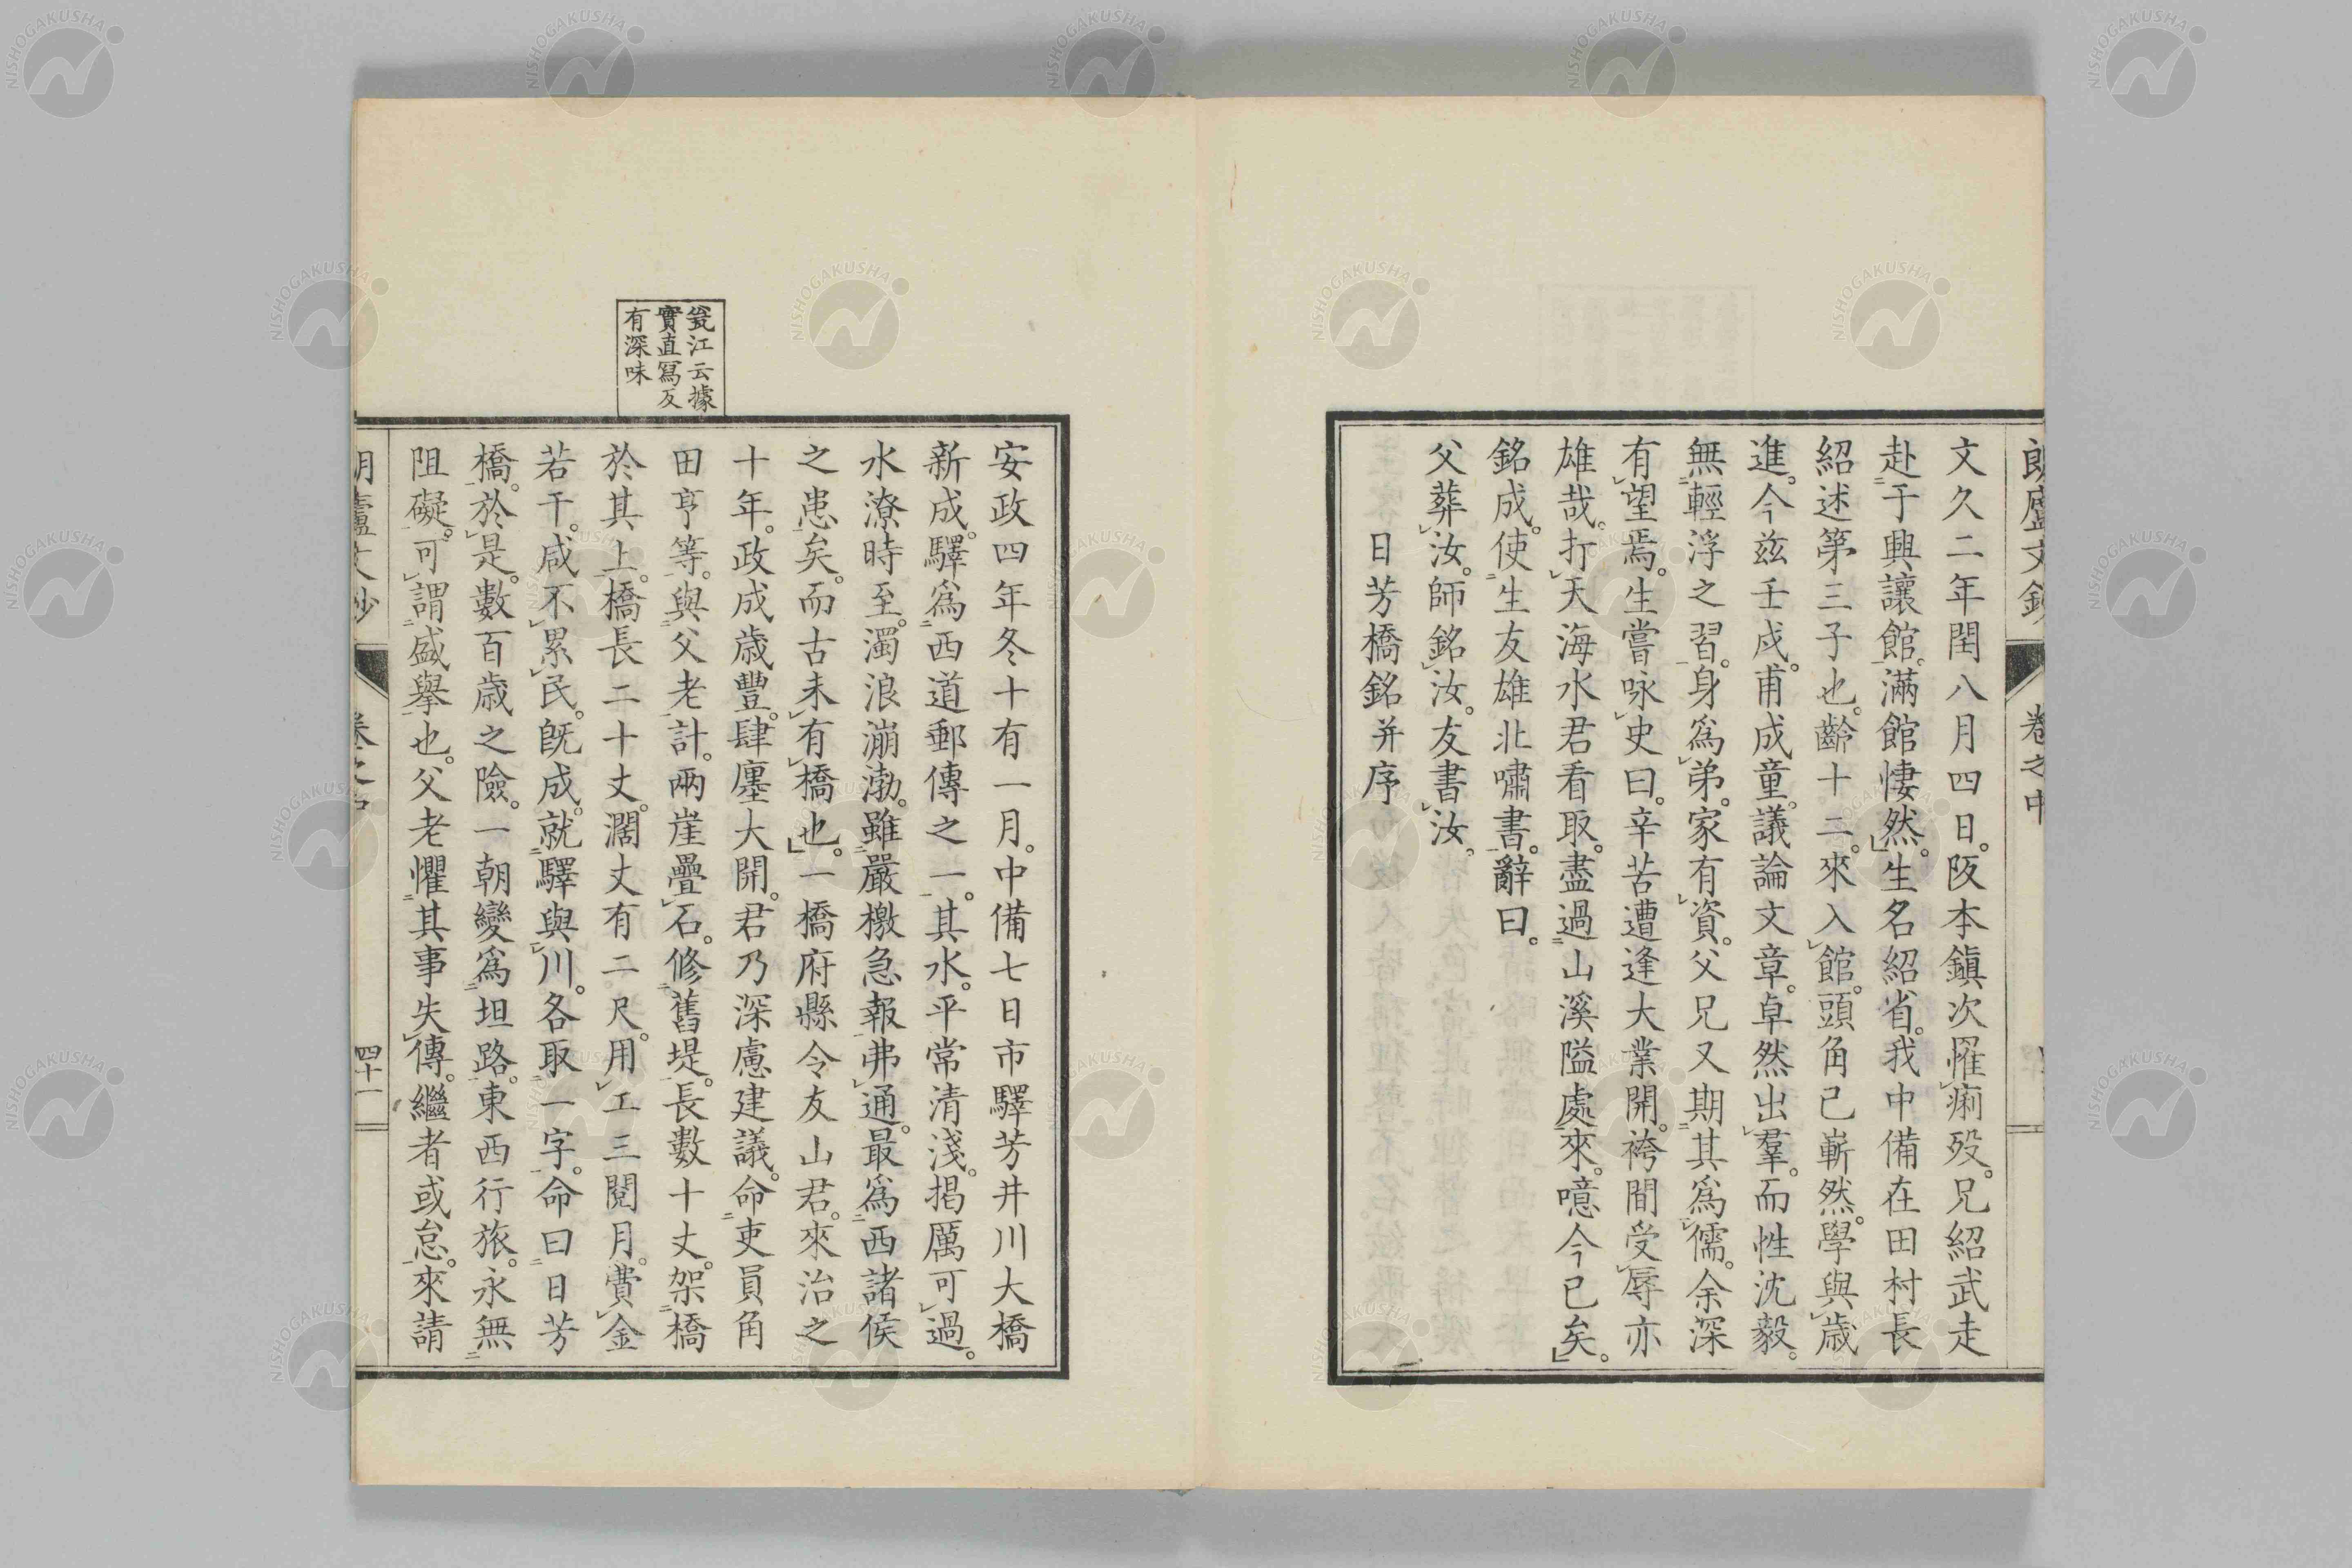 朗廬文鈔 卷之中
文久二年閏八月四日。阪本鎭次罹痢歿。兄紹武走
赴于興讓館。滿館悽然。生名紹省。我中備在田村長
紹述第三子也。齡十二。來入館。頭角已嶄然。學與歲
進。今茲壬戌。甫成童。議論文章。卓然出羣。而性沈毅。
無輕浮之習。身爲弟。家有資。父兄又期其爲儒。余深
有望焉。生嘗咏史曰。辛苦遭逢大業開。袴間受辱亦
雄哉。打天海水君看取。盡過山溪隘處來。噫今已矣。
銘成。使生友雄北嘯書。辭曰。
父葬汝。師銘汝。友書汝。
日芳橋銘并序
安政四年冬十有一月。中備七日市驛芳井川大橋
新成。驛爲西道郵傳之一。其水。平常清淺。揭厲可過。
水潦時至。濁浪漰渤。雖嚴檄急報。弗通。最爲西諸侯
之患矣。而古未有橋也。一橋府縣令友山君。來治之
十年。政成歲豐。肆廛大開。君乃深慮建議。命吏員角
田亨等。與父老計。兩崖疊石。修舊堤。長數十丈。架橋
於其上。橋長二十丈。濶丈有二尺。用工三閱月。費金
若干。咸不累民。旣成。就驛與川。各取一字。命曰日芳
橋。於是。數百歲之險。一朝變爲坦路。東西行旅。永無
阻礙。可謂盛擧也。父老懼其事失傳。繼者或怠。來請
瓮江云據
實直寫反
有深味
朗廬文鈔 卷之中 四十一
NISHOGAKUSHA